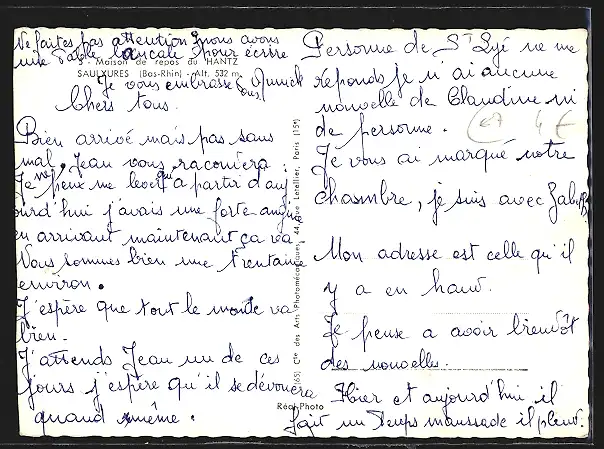 Ne faites pas attention, nous avons
une table bancale pour écrire
3 - Maison de repos du HANTZ
SAULXURES (Bas-Rhin) - Alt. 532 m.
Je vous embrasse tous
Chers tous.
Bien arrivé mais pas sans
mal, Jean vous racontera
Je ne peux me lever qu'à partir d'auj
ourd'hui j'avais une forte angine
en arrivant maintenant ça va
Vous sommes bien une trentaine
environ.
J'espère que tout le monde va
bien.
J'attends Jean un de ces
jours j'espère qu'il se dévouera
quand même.
(65) Cie des Arts Photomécaniques, 44, rue Letellier, Paris (15e)
Réal-Photo
Personne de St Dyé ne me
réponds je n'ai aucune
nouvelle de Claudine ni
de personne.
67 4€
Je vous ai marqué notre
chambre, je suis avec
Mon adresse est celle qu'il
y a en haut.
Je pense a avoir bientôt
des nouvelles.
Hier et aujourd'hui il
fait un temps maussade il pleut.